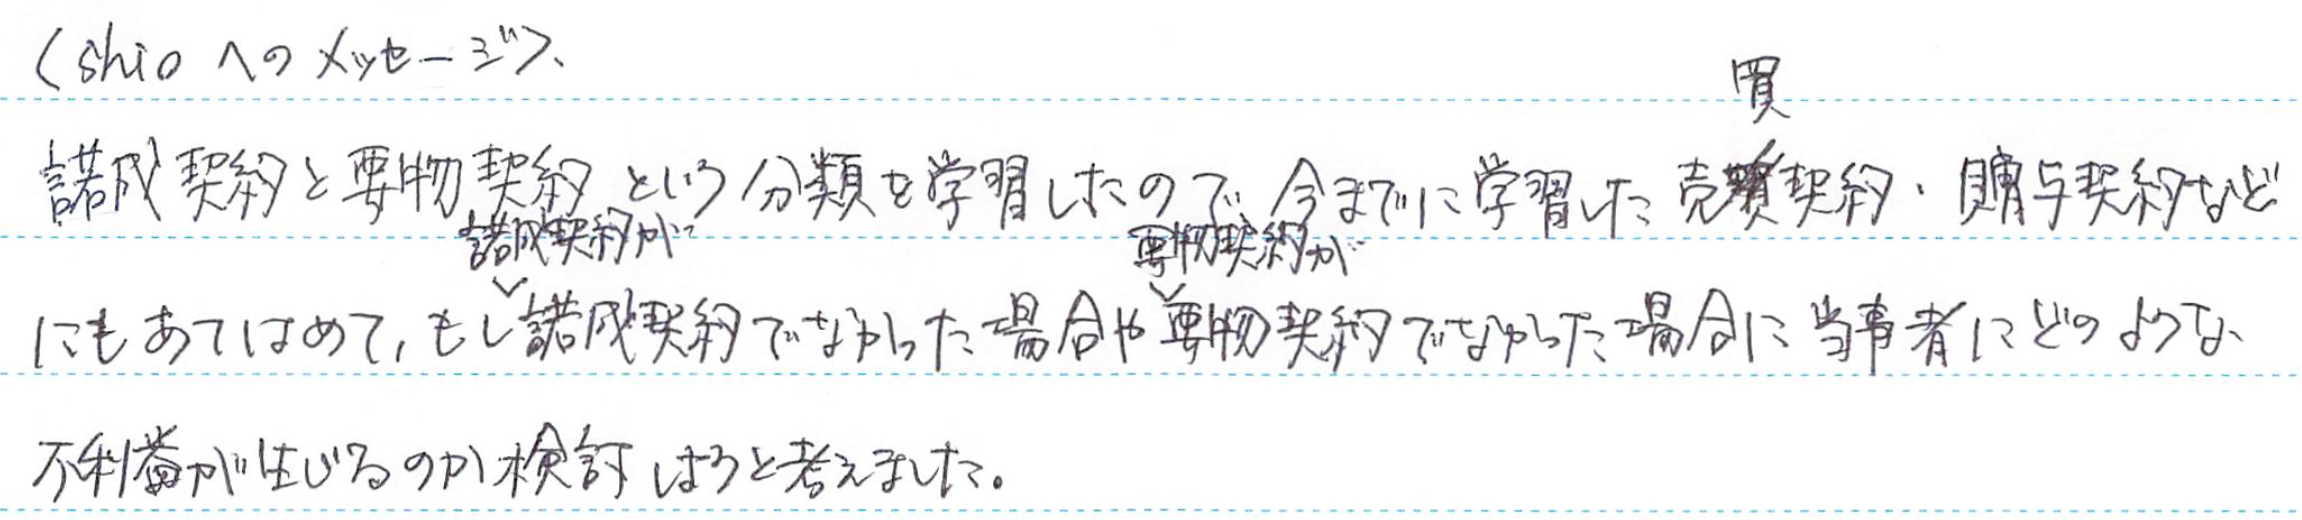 〈shioへのメッセージ〉、
諾成契約と要物契約という分類を学習したので、今までに学習した売買契約・贈与契約など
にもあてはめて、もし諾成契約が諾成契約でなかった場合や要物契約が要物契約でなかった場合に当事者にどのような
不利益が生じるのか検討しようと考えました。